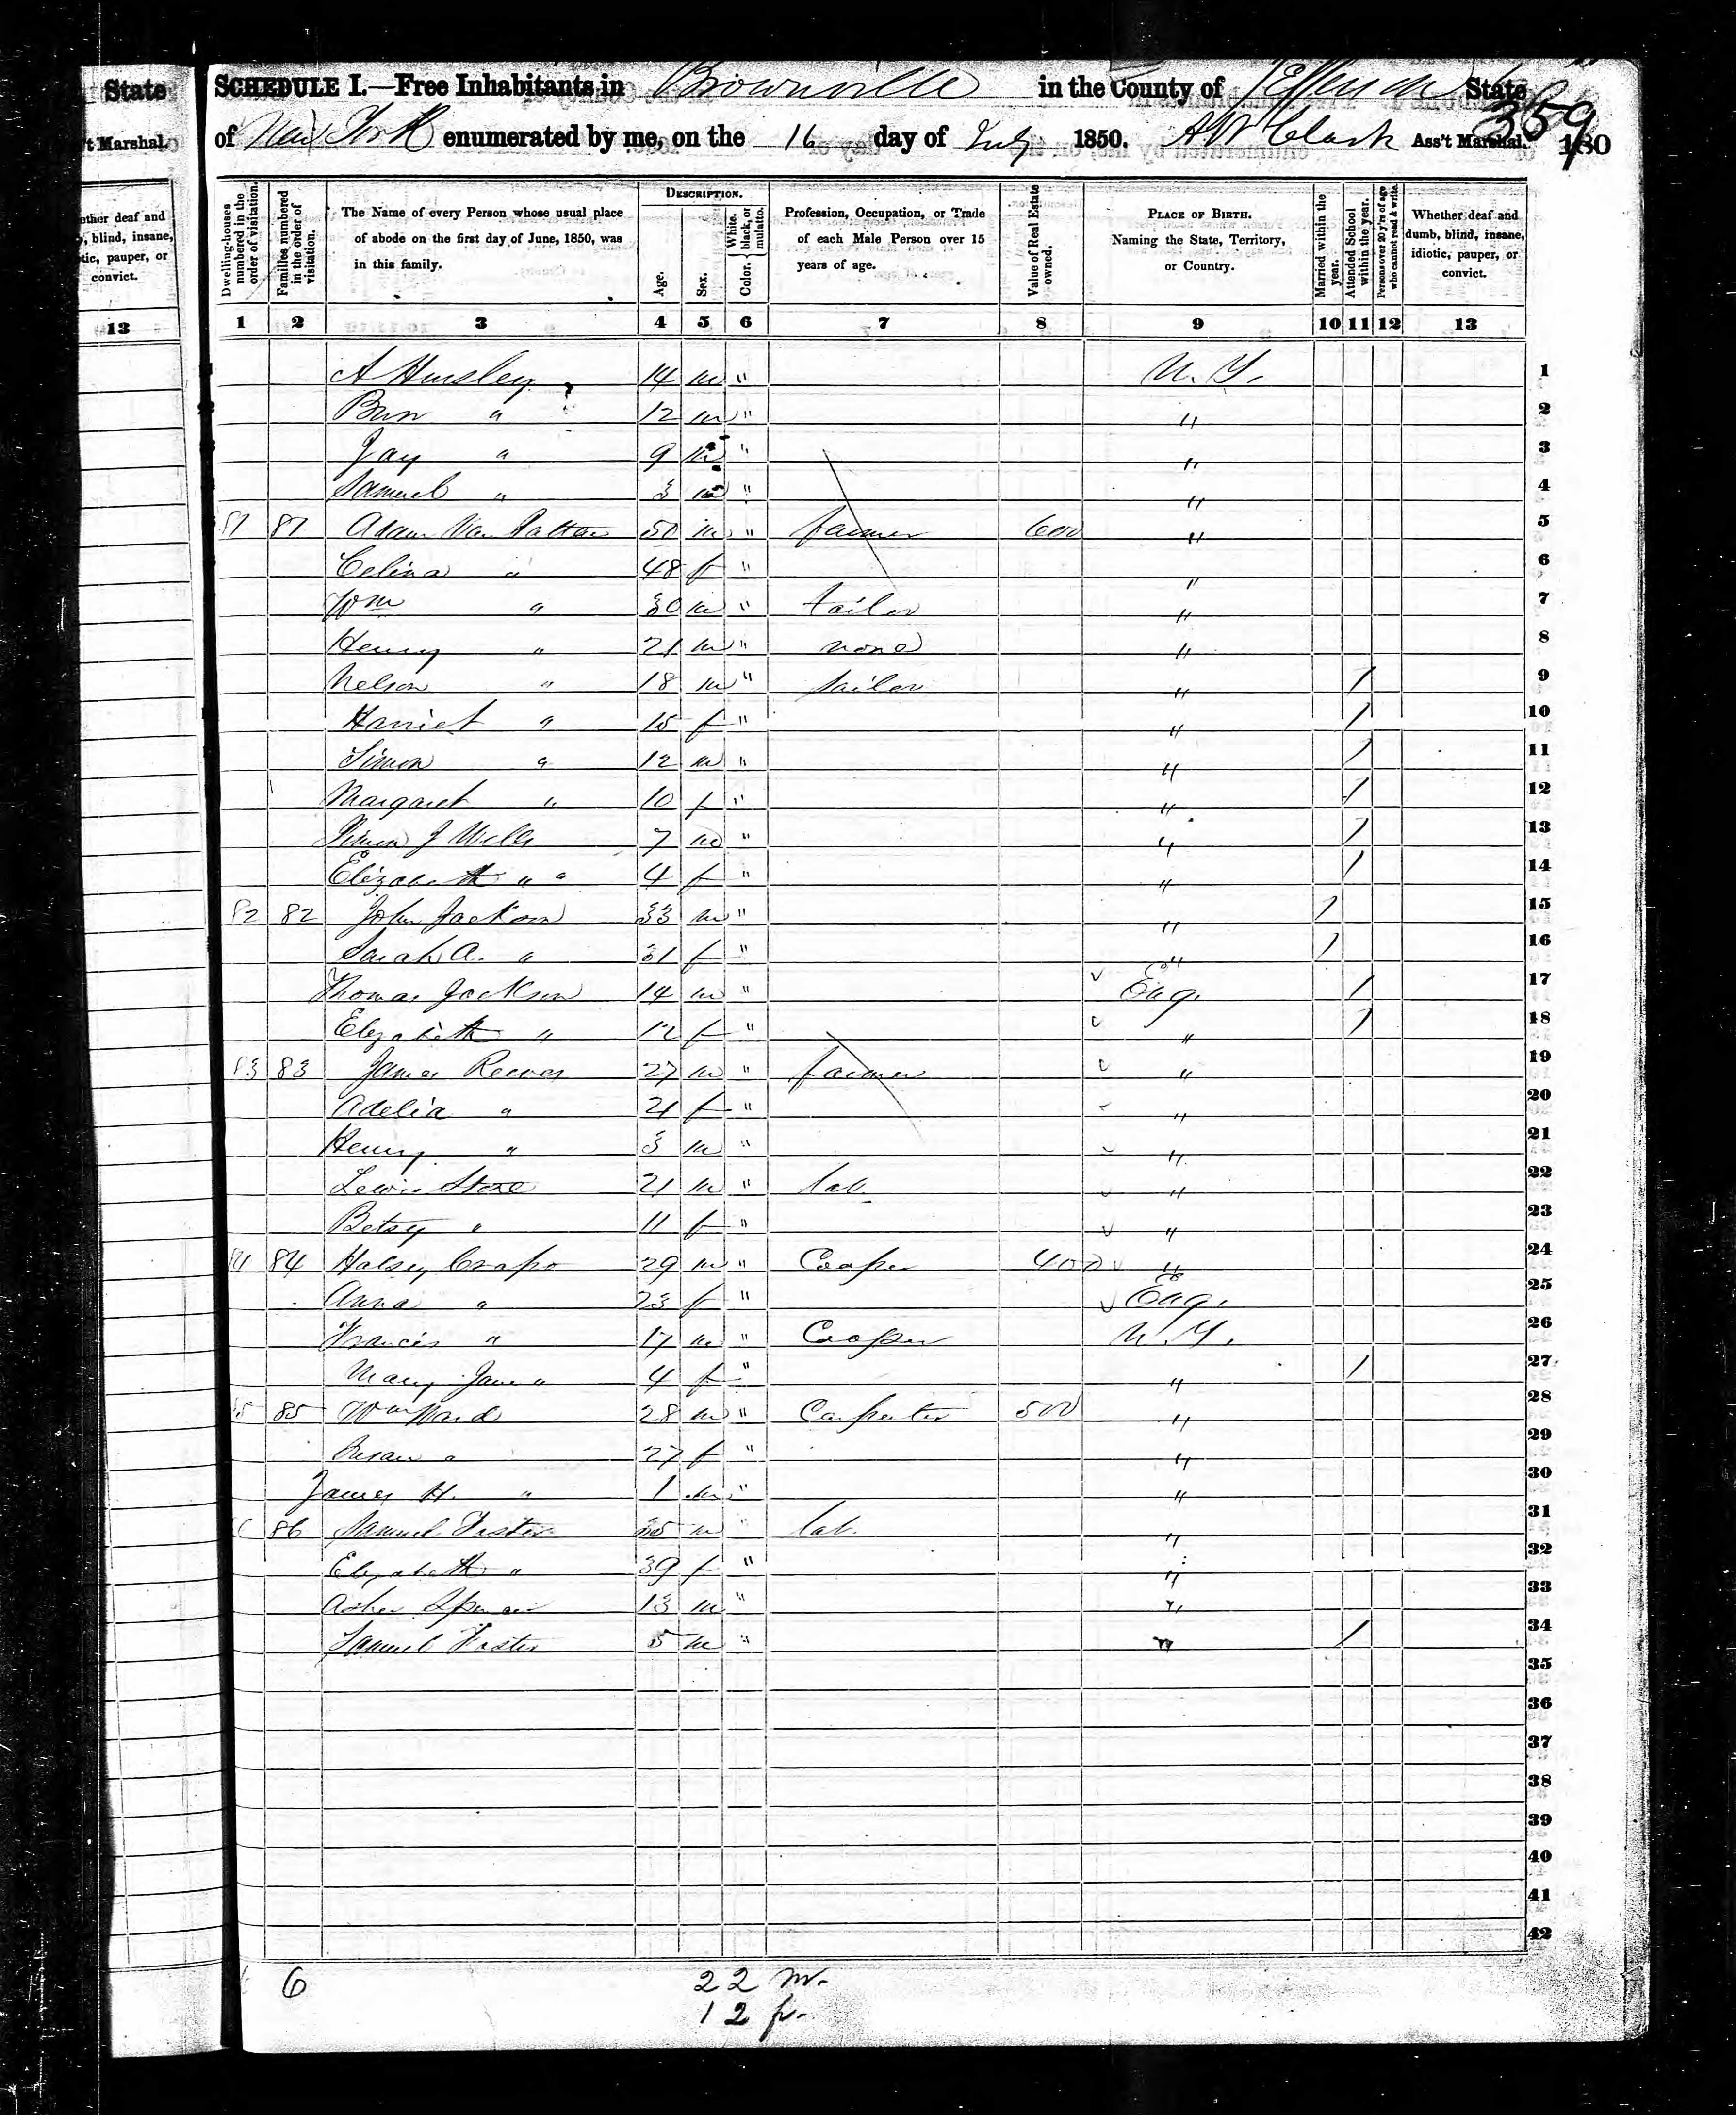 State
't Marshal.
ether deaf and
, blind, insane,
tic, pauper, or
convict.
13
SCHEDULE I.—Free Inhabitants in Brownville in the County of Jefferson State
of New York enumerated by me, on the 16 day of July 1850. A W Clark Ass't Marshal. 359 180
Dwelling-houses numbered in the order of visitation.
Families numbered in the order of visitation.
The Name of every Person whose usual place of abode on the first day of June, 1850, was in this family.
DESCRIPTION.
Age.
Sex.
Color. White, black, or mulatto.
Profession, Occupation, or Trade of each Male Person over 15 years of age.
Value of Real Estate owned.
PLACE OF BIRTH. Naming the State, Territory, or Country.
Married within the year.
Attended School within the year.
Persons over 20 y'rs of age who cannot read & write.
Whether deaf and dumb, blind, insane, idiotic, pauper, or convict.
1 2 3 4 5 6 7 8 9 10 11 12 13
A 14 m " N. Y. 1
" 12 m " " 2
Jay " 9 m " " 3
Samuel " 3 m " " 4
81 81 Adam Van Pattan 50 m " farmer 600 " 5
Celina " 48 f " " 6
Wm " 30 m " tailor " 7
Henry " 21 m " none " 8
Nelson " 18 m " sailor " / 9
Harriet " 15 f " " / 10
Simon " 12 m " " / 11
Margaret " 10 f " " / 12
J Wells 7 m " " / 13
Elizabeth " " 4 f " " / 14
82 82 John Jackson 33 m " " / 15
Sarah A. " 31 f " " / 16
Thomas Jackson 14 m " Eng. / 17
Elizabeth " 12 f " " / 18
83 83 James Reeves 27 m " farmer " 19
Adelia " 21 f " " 20
Henry " 3 m " " 21
Lewis Stone 21 m " lab. " 22
Betsey " 11 f " " 23
84 84 Halsey Crapo 29 m " Cooper 400 " 24
Anna " 23 f " Eng. 25
Francis " 17 m " Cooper N. Y. 26
Mary Jane " 4 f " " / 27
85 85 Wm Ward 28 m " Carpenter 500 " 28
Susan " 27 f " " 29
James H. " 1 m " " 30
86 Samuel Foster 35 m " lab. " 31
Elizabeth " 39 f " " 32
Asher Spencer 13 m " " 33
Samuel Foster 5 m " " / 34
35
36
37
38
39
40
41
42
6 22 m.
12 f.